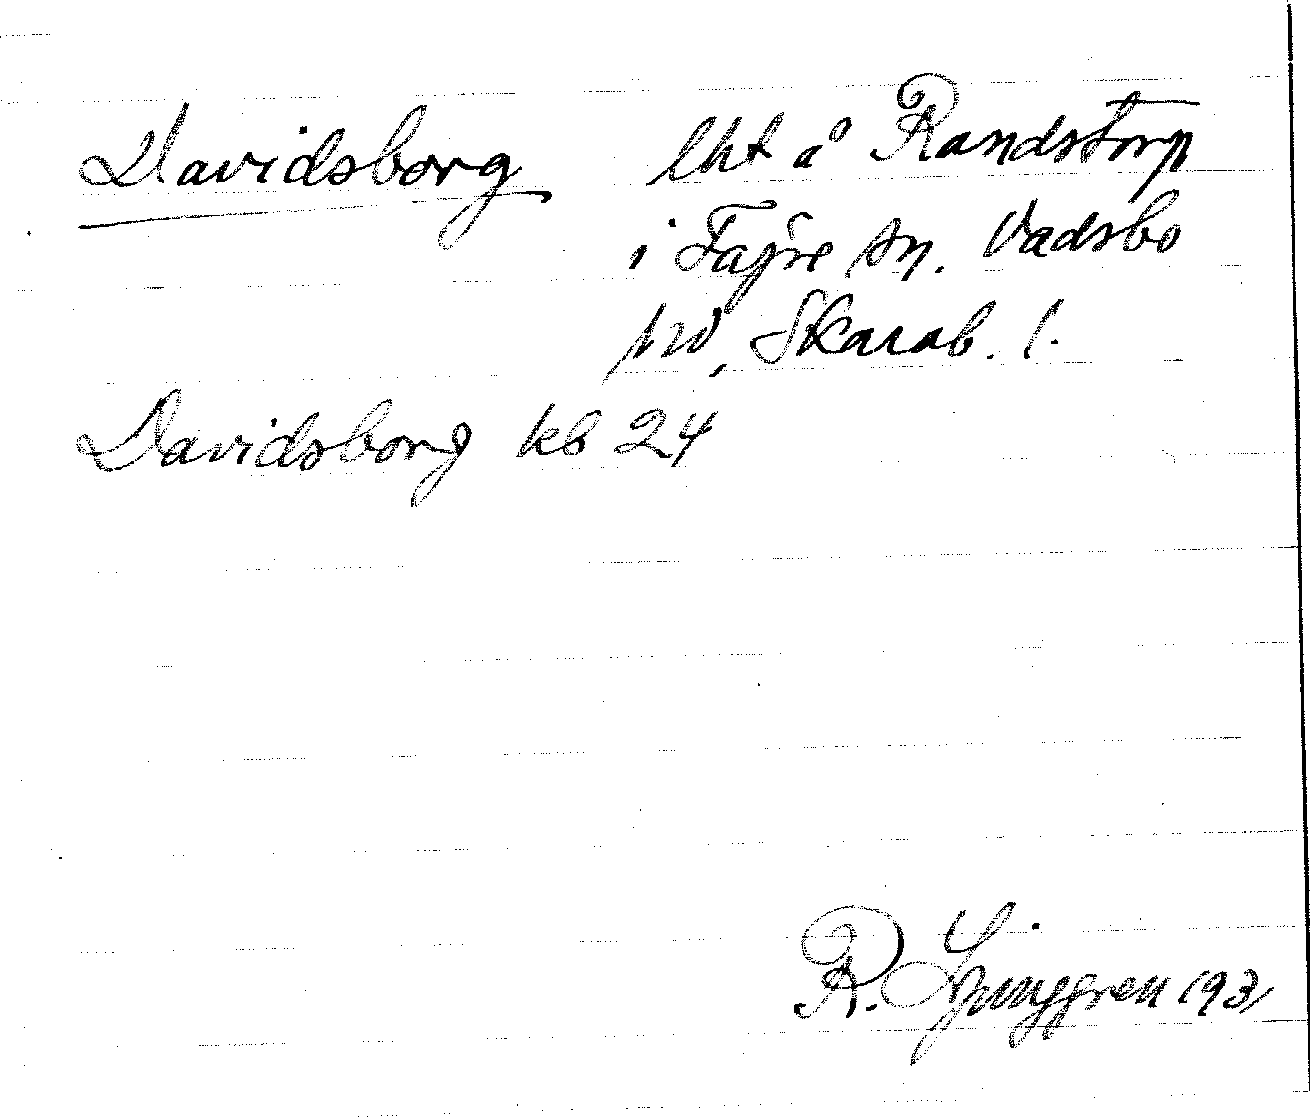 Davidsborg lht å Randstorp
i Fägre sn. Vadsbo
hd, Skarab. l.
Davidsborg kb 24
R. Ljunggren 1931